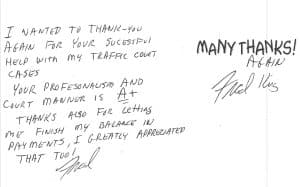 I WANTED TO THANK-YOU
AGAIN FOR YOUR SUCESSFUL
HELP WITH MY TRAFFIC COURT
CASES
YOUR PROFESONALISM AND
COURT MANNER IS A+
THANKS ALSO FOR LETTING
ME FINISH MY BALANCE IN
PAYMENTS, I GREATLY APPRECIATED
THAT TOO!
Fred
MANY THANKS!
AGAIN
Fred